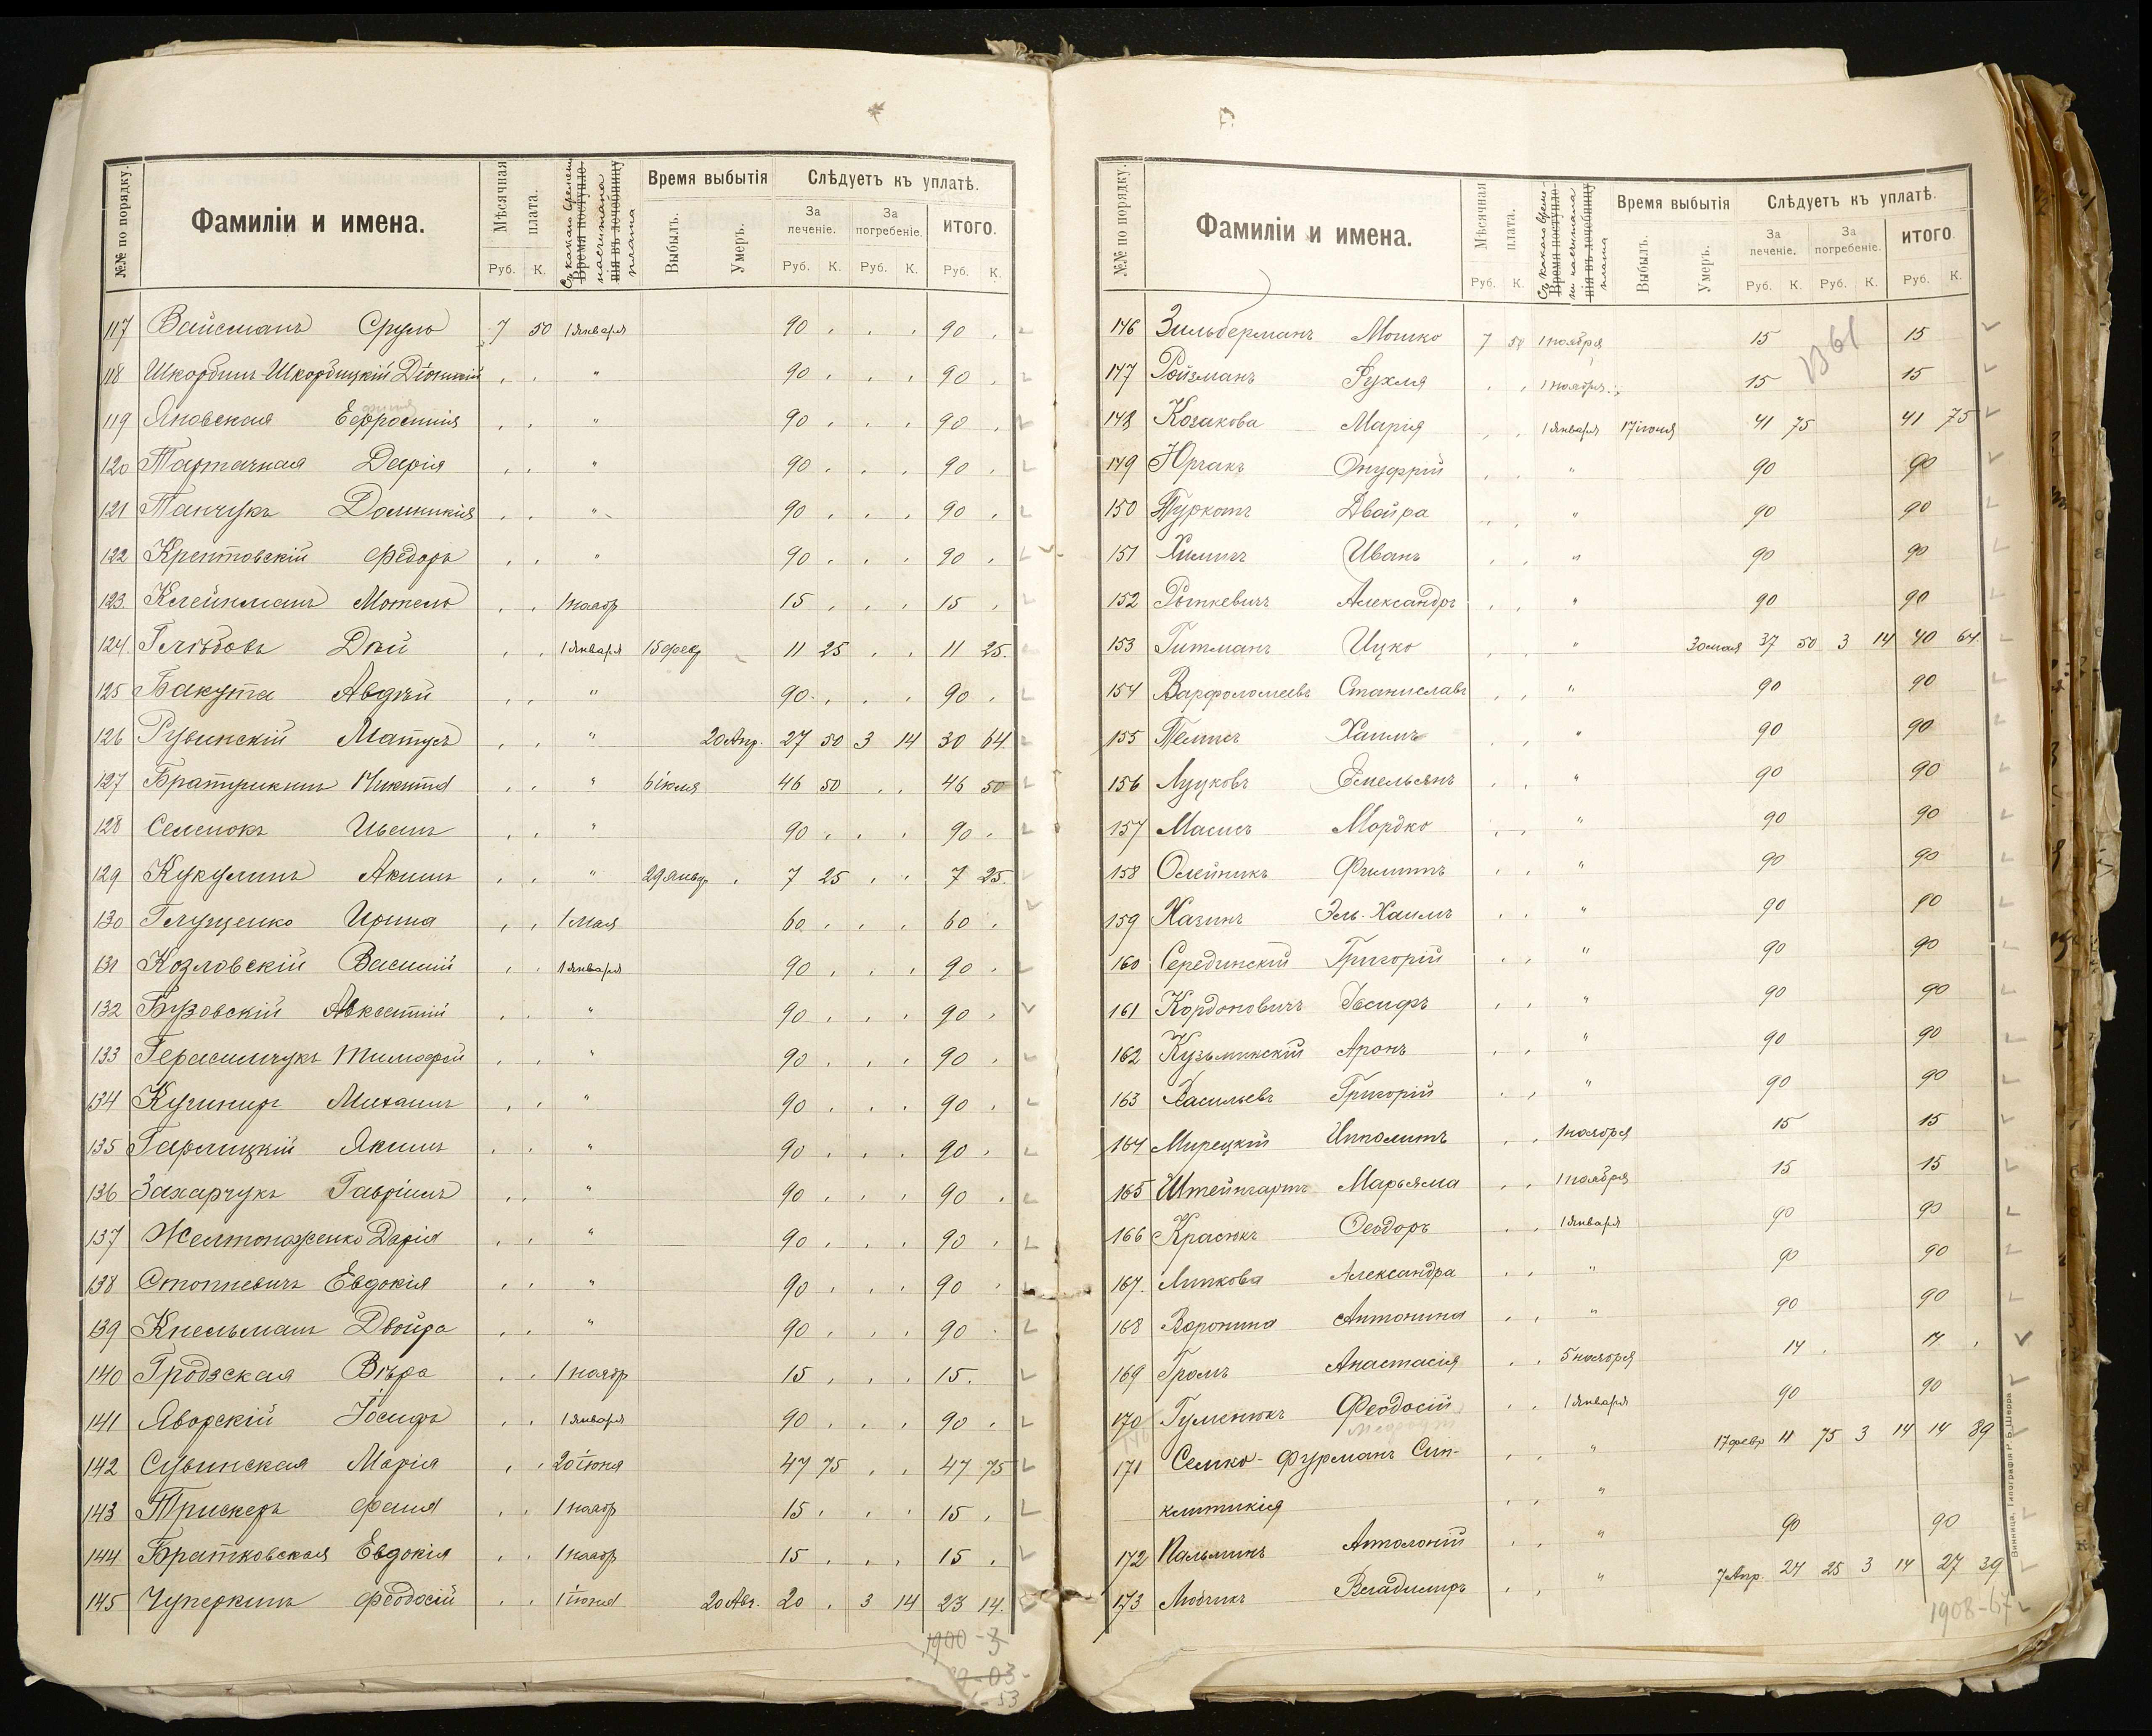 №№ по порядку. Фамиліи и имена. Мѣсячная плата. Руб. К. Съ какого времени насчитана плата Время поступленія въ лечебницу Время выбытія Выбылъ. Умеръ. Слѣдуетъ къ уплатѣ. За леченіе. Руб. К. За погребеніе. Руб. К. ИТОГО. Руб. К.
117 Вайсманъ Сруль 7 50 1 Января 90 . . . 90 .
118 Шкорбин-Шкорбицкій Діонисій . . " 90 . . . 90 .
119 Яновская Ефросинія . . " 90 . . . 90 .
120 Тартачная Дарія . . " 90 . . . 90 .
121 Танчукъ Домникія . . " 90 . . . 90 .
122 Крентовскій Федоръ . . " 90 . . . 90 .
123. Клейнманъ Мотель . . 1 ноябр 15 . . . 15 .
124. Глѣбовъ . . 1 Января 15 фев 11 25 . . 11 25.
125 Бакута Авдѣй . . " 90 . . . 90 .
126 Рувинскій Матус . . " 20 Апр. 27 50 3 14 30 64
127 Братушкинъ Никита . . " 6 іюля 46 50 . . 46 50
128 Семенюкъ . . " 90 . . . 90 .
129 Кукулинъ Акимъ . . " 29 Январ . 7 25 . . 7 25.
130 Глущенко Ирина . . 1 Мая 60 . . . 60 .
131 Козловскій Василій . . 1 Января 90 . . . 90 .
132 Бузовскій Авксентій . . " 90 . . . 90 .
133 Герасимчукъ Тимофей . . " 90 . . . 90 .
134 Кушниръ Михаилъ . . " 90 . . . 90 .
135 Гарлицкій Якимъ . . " 90 . . . 90 .
136 Захарчукъ Гавріилъ . . " 90 . . . 90 .
137 Желтоноженко Дарія . . " 90 . . . 90 .
138 Стопневичъ Евдокія . . " 90 . . . 90 .
139 Кнельманъ Двойра . . " 90 . . . 90 .
140 Гродзская Вѣра . . 1 ноябр 15 . . . 15.
141 Яворскій Іосифъ . . 1 Января 90 . . . 90 .
142 Сувинская Марія . . 20 іюня 47 75 . . 47 75
143 Трискеръ Фаня . . 1 ноябр 15 . . . 15 .
144 Братковская Евдокія . . 1 ноябр 15 . . . 15 .
145 Чуперкинъ Феодосій . . 1 іюня 20 Авг. 20 . 3 14 23 14.
1900 - 3
№№ по порядку. Фамиліи и имена. Мѣсячная плата. Руб. К. Съ какого времени насчитана плата Время поступленія въ лечебницу Время выбытія Выбылъ. Умеръ. Слѣдуетъ къ уплатѣ. За леченіе. Руб. К. За погребеніе. Руб. К. ИТОГО Руб. К.
146 Зильберманъ Мошко 7 50 1 ноября 15 15
1361
147 Ройзманъ Рухля . . 1 ноября 15 15
148 Козакова Марія . . 1 Января 17 іюня 41 75 41 75
149 Юрчакъ Онуфрій . . " 90 90
150 Туркотъ Двойра . . " 90 90
151 Хиличъ Иванъ . . " 90 90
152 Рымкевичъ Александръ . . " 90 90
153 Гитманъ Ицко . . " 30 мая 37 50 3 14 40 64.
154 Варфоломеевъ Станиславъ . . " 90 90
155 Телисъ Хаимъ . . " 90 90
156 Луцковъ Емельянъ . . " 90 90
157 Масисъ Мордко . . " 90 90
158 Олейникъ Филиппъ . . " 90 90
159 Хазинъ Эль-Хаимъ . . " 90 90
160 Серединскій Григорій . . " 90 90
161 Кордоновичъ Іосифъ . . " 90 90
162 Кузьминскій Аронъ . . " 90 90
163 Васильевъ Григорій . . " 90 90
164 Мирецкій Ипполитъ . . 1 ноября 15 15
165 Штейнгартъ Марьяма . . 1 ноября 15 15
166 Красюкъ Феодоръ . . 1 Января 90 90
167. Липкова Александра . . " 90 90
168 Воронина Антонина . . " 90 90
169 Громъ Анастасія . . 5 ноября 14 . 14 .
170 Гуменюкъ Феодосій . . 1 Января 90 90
171 Семко-Фурманъ Син- . . " 17 февр 11 75 3 14 14 89
клитикія . . "
172 Пальминъ Апполоній . . " 90 90
173 Любчикъ Владимиръ . . " 7 Апр. 24 25 3 14 27 39
1908-67
Винница, Типографія Р. Б. Шерра